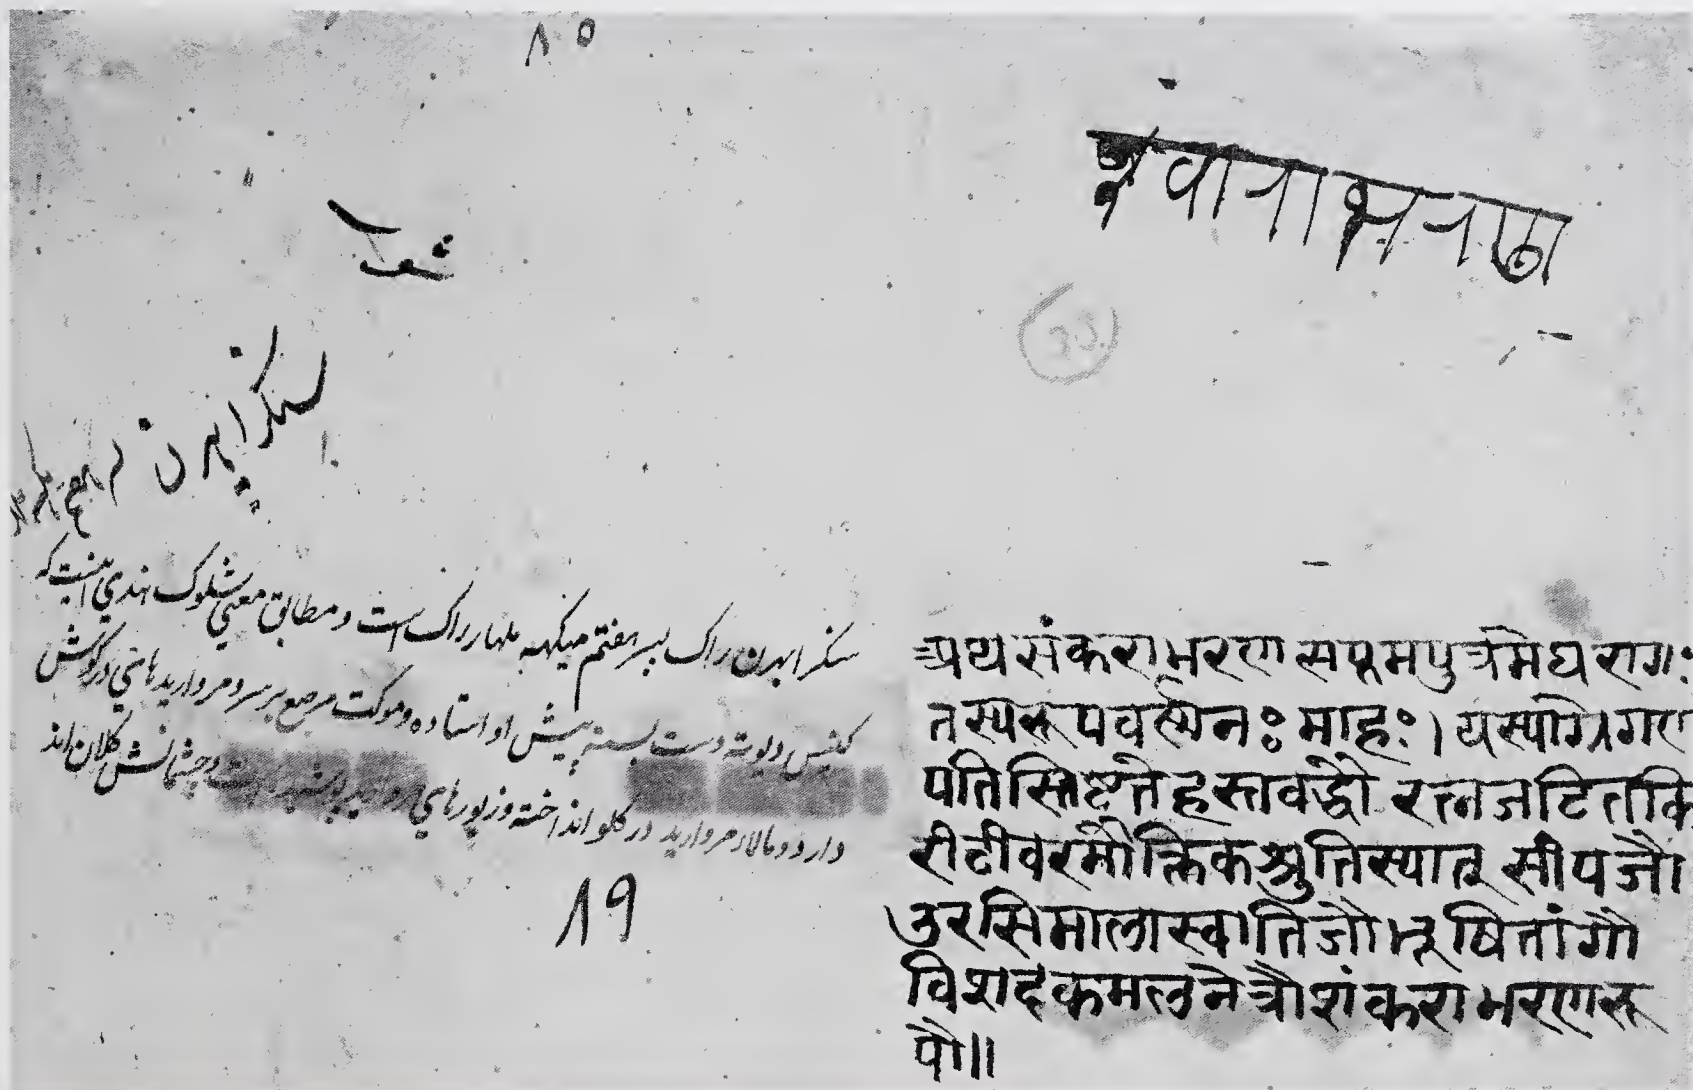 ۸۵
سنکرابهرن
سنکرابهرن راک پسر هفتم میکهه ملهار راک است و مطابق معنی شلوک هندی اینست که
کنیس دیوته دست بسته پیش او استاده و موکت مرصع بر سر و مرواریدهای در کوش
دارد و مالا مروارید در کلو انداخته و زیورهای مروارید پوشیده است و چشمانش کلان اند
۸۹
अथ संकराभरण सप्तमपुत्रमेघ रागः
तस्य रूपवर्ननः माहः। यस्याग्रे गण
पतिस्तिष्टते हस्तवद्धौ रत्नजटितकि
रीटीवरमौक्तिकश्रुतिस्यात् सीपजौ
उरसिमालास्वातिजौ भूषितांगौ
विशदकमलनेत्रौ शंकराभरणरू
पौ॥